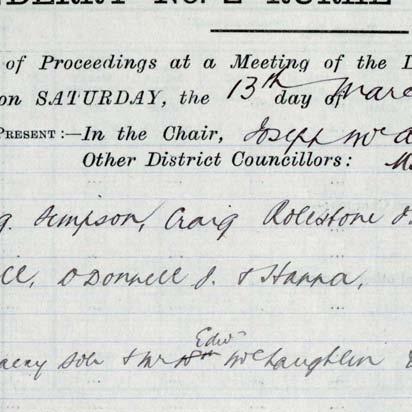 DERRY No. 2 RURAL
of Proceedings at a Meeting of the
on SATURDAY, the 13th day of Marc
PRESENT:—In the Chair, Joseph Mc
Other District Councillors:
Simpson, Craig Rolestone
O'Donnell J. & Hanna,
solr & Mr Edwd McLaughlin